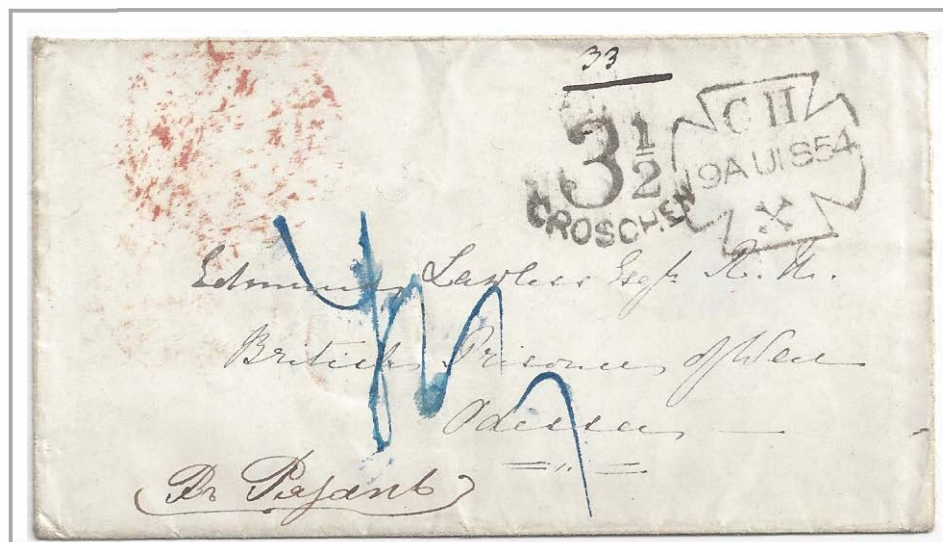 33
3½
GROSCHEN
C H
19AU1854
Edmund Lawless Esqr R. N.
British Prisoner of War
Odessa